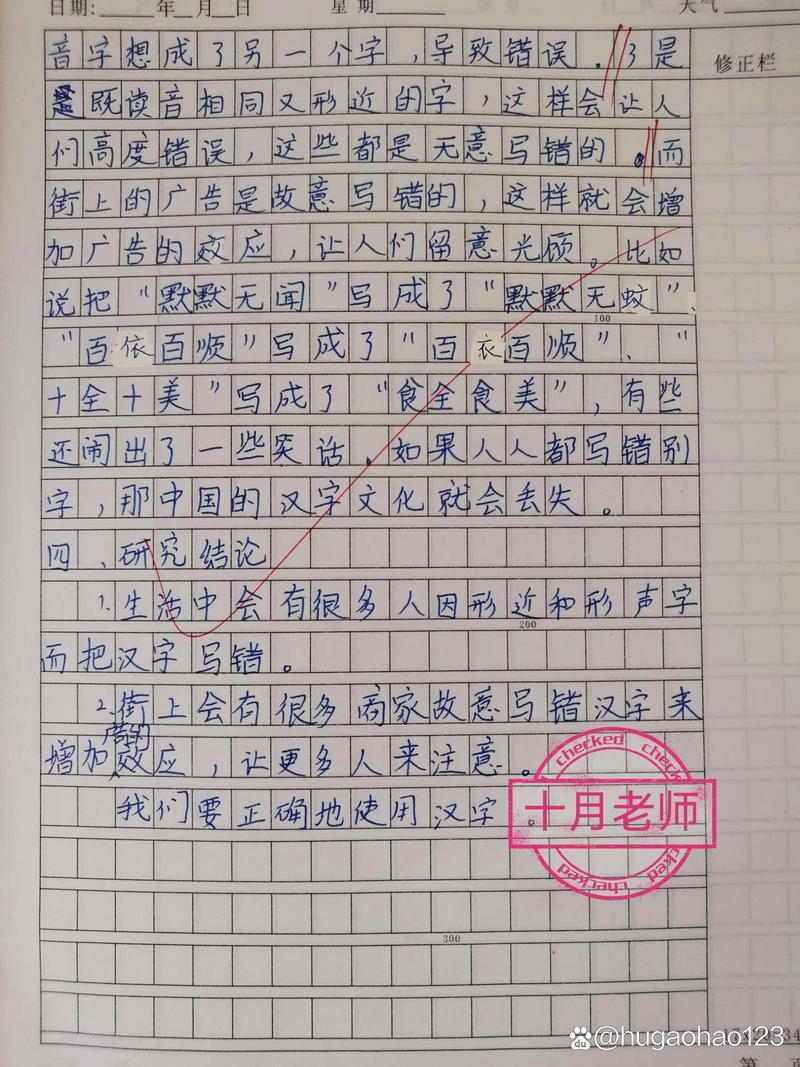 日期:____年__月__日 星期______ 天气
音字想成了另一个字,导致错误.3是
既读音相同又形近的字,这样会让人
们高度错误,这些都是无意写错的.而
街上的广告是故意写错的,这样就会增
加广告的效应,让人们留意光顾。比如
说把“默默无闻”写成了“默默无蚊”、
100
“百依百顺”写成了“百衣百顺”、“
十全十美”写成了“食全食美”,有些
还闹出了一些笑话.如果人人都写错别
字,那中国的汉字文化就会丢失。
四、研究结论
1.生活中会有很多人因形近和形声字
200
而把汉字写错。
2.街上会有很多商家故意写错汉字来
广告的
增加效应,让更多人来注意。
我们要正确地使用汉字。
300
修正栏
checked
十月老师
checked
第
@hugaohao123